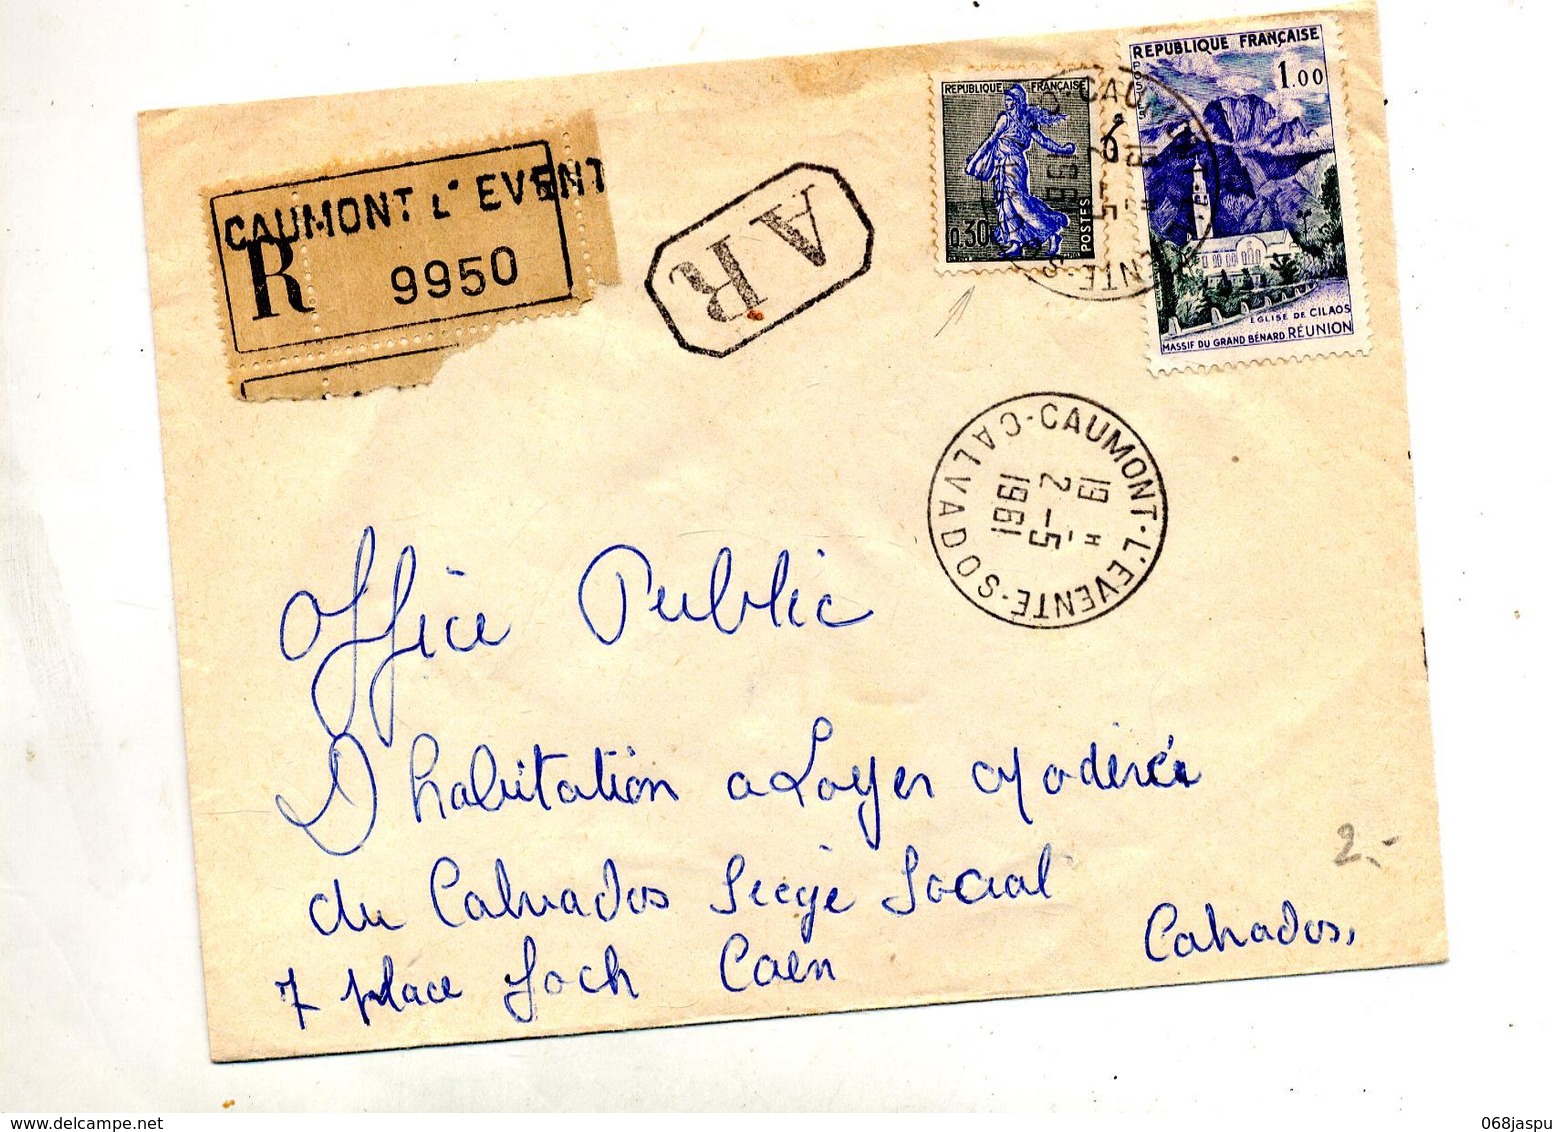 CAUMONT L' EVENT
R 9950
A R
REPUBLIQUE FRANÇAISE
0.30
POSTES
REPUBLIQUE FRANÇAISE
POSTES
1.00
EGLISE DE CILAOS
MASSIF DU GRAND BÉNARD RÉUNION
CAUMONT-L'EVENTE-S
CALVADOS
19 H
2 -5
1961
Office Public
D'habitation a Loyer Moderée
du Calvados Siège Social
7 place Foch Caen
Calvados,
2,-
068jaspu